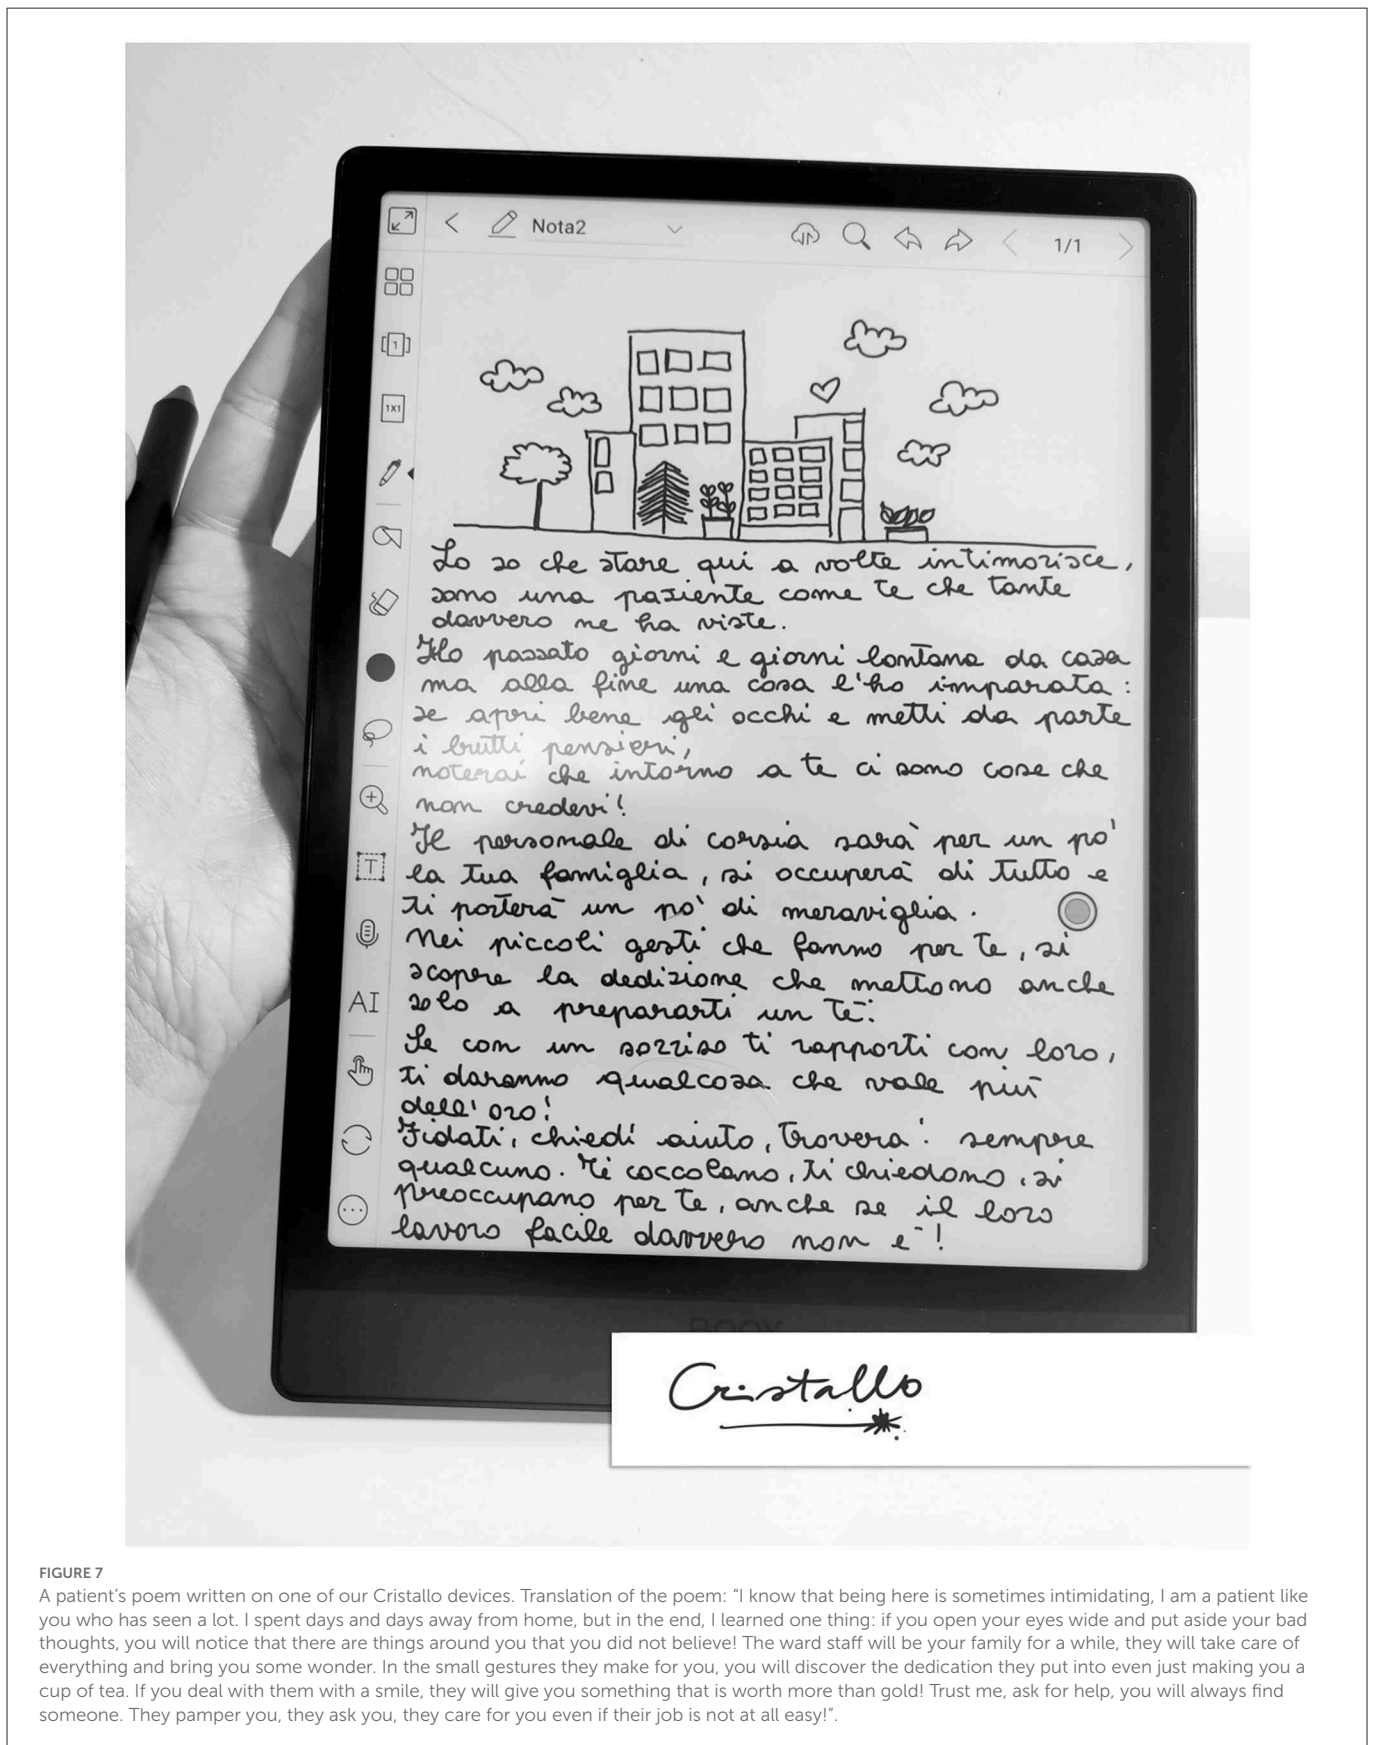 Nota2
1/1
1
1x1
Lo so che stare qui a volte intimorisce,
sono una paziente come te che tante
davvero ne ha viste.
Ho passato giorni e giorni lontana da casa
ma alla fine una cosa l'ho imparata:
se apri bene gli occhi e metti da parte
i brutti pensieri,
noterai che intorno a te ci sono cose che
non credevi!
Il personale di corsia sarà per un po'
la tua famiglia, si occuperà di tutto e
ti porterà un po' di meraviglia.
Nei piccoli gesti che fanno per te, si
scopre la dedizione che mettono anche
solo a prepararti un tè.
Se con un sorriso ti rapporti con loro,
ti daranno qualcosa che vale più
dell'oro!
Fidati, chiedi aiuto, troverai sempre
qualcuno. Ti coccolano, ti chiedono, si
preoccupano per te, anche se il loro
lavoro facile davvero non è!
T
AI
BOOX
Cristallo
FIGURE 7
A patient's poem written on one of our Cristallo devices. Translation of the poem: "I know that being here is sometimes intimidating, I am a patient like
you who has seen a lot. I spent days and days away from home, but in the end, I learned one thing: if you open your eyes wide and put aside your bad
thoughts, you will notice that there are things around you that you did not believe! The ward staff will be your family for a while, they will take care of
everything and bring you some wonder. In the small gestures they make for you, you will discover the dedication they put into even just making you a
cup of tea. If you deal with them with a smile, they will give you something that is worth more than gold! Trust me, ask for help, you will always find
someone. They pamper you, they ask you, they care for you even if their job is not at all easy!".